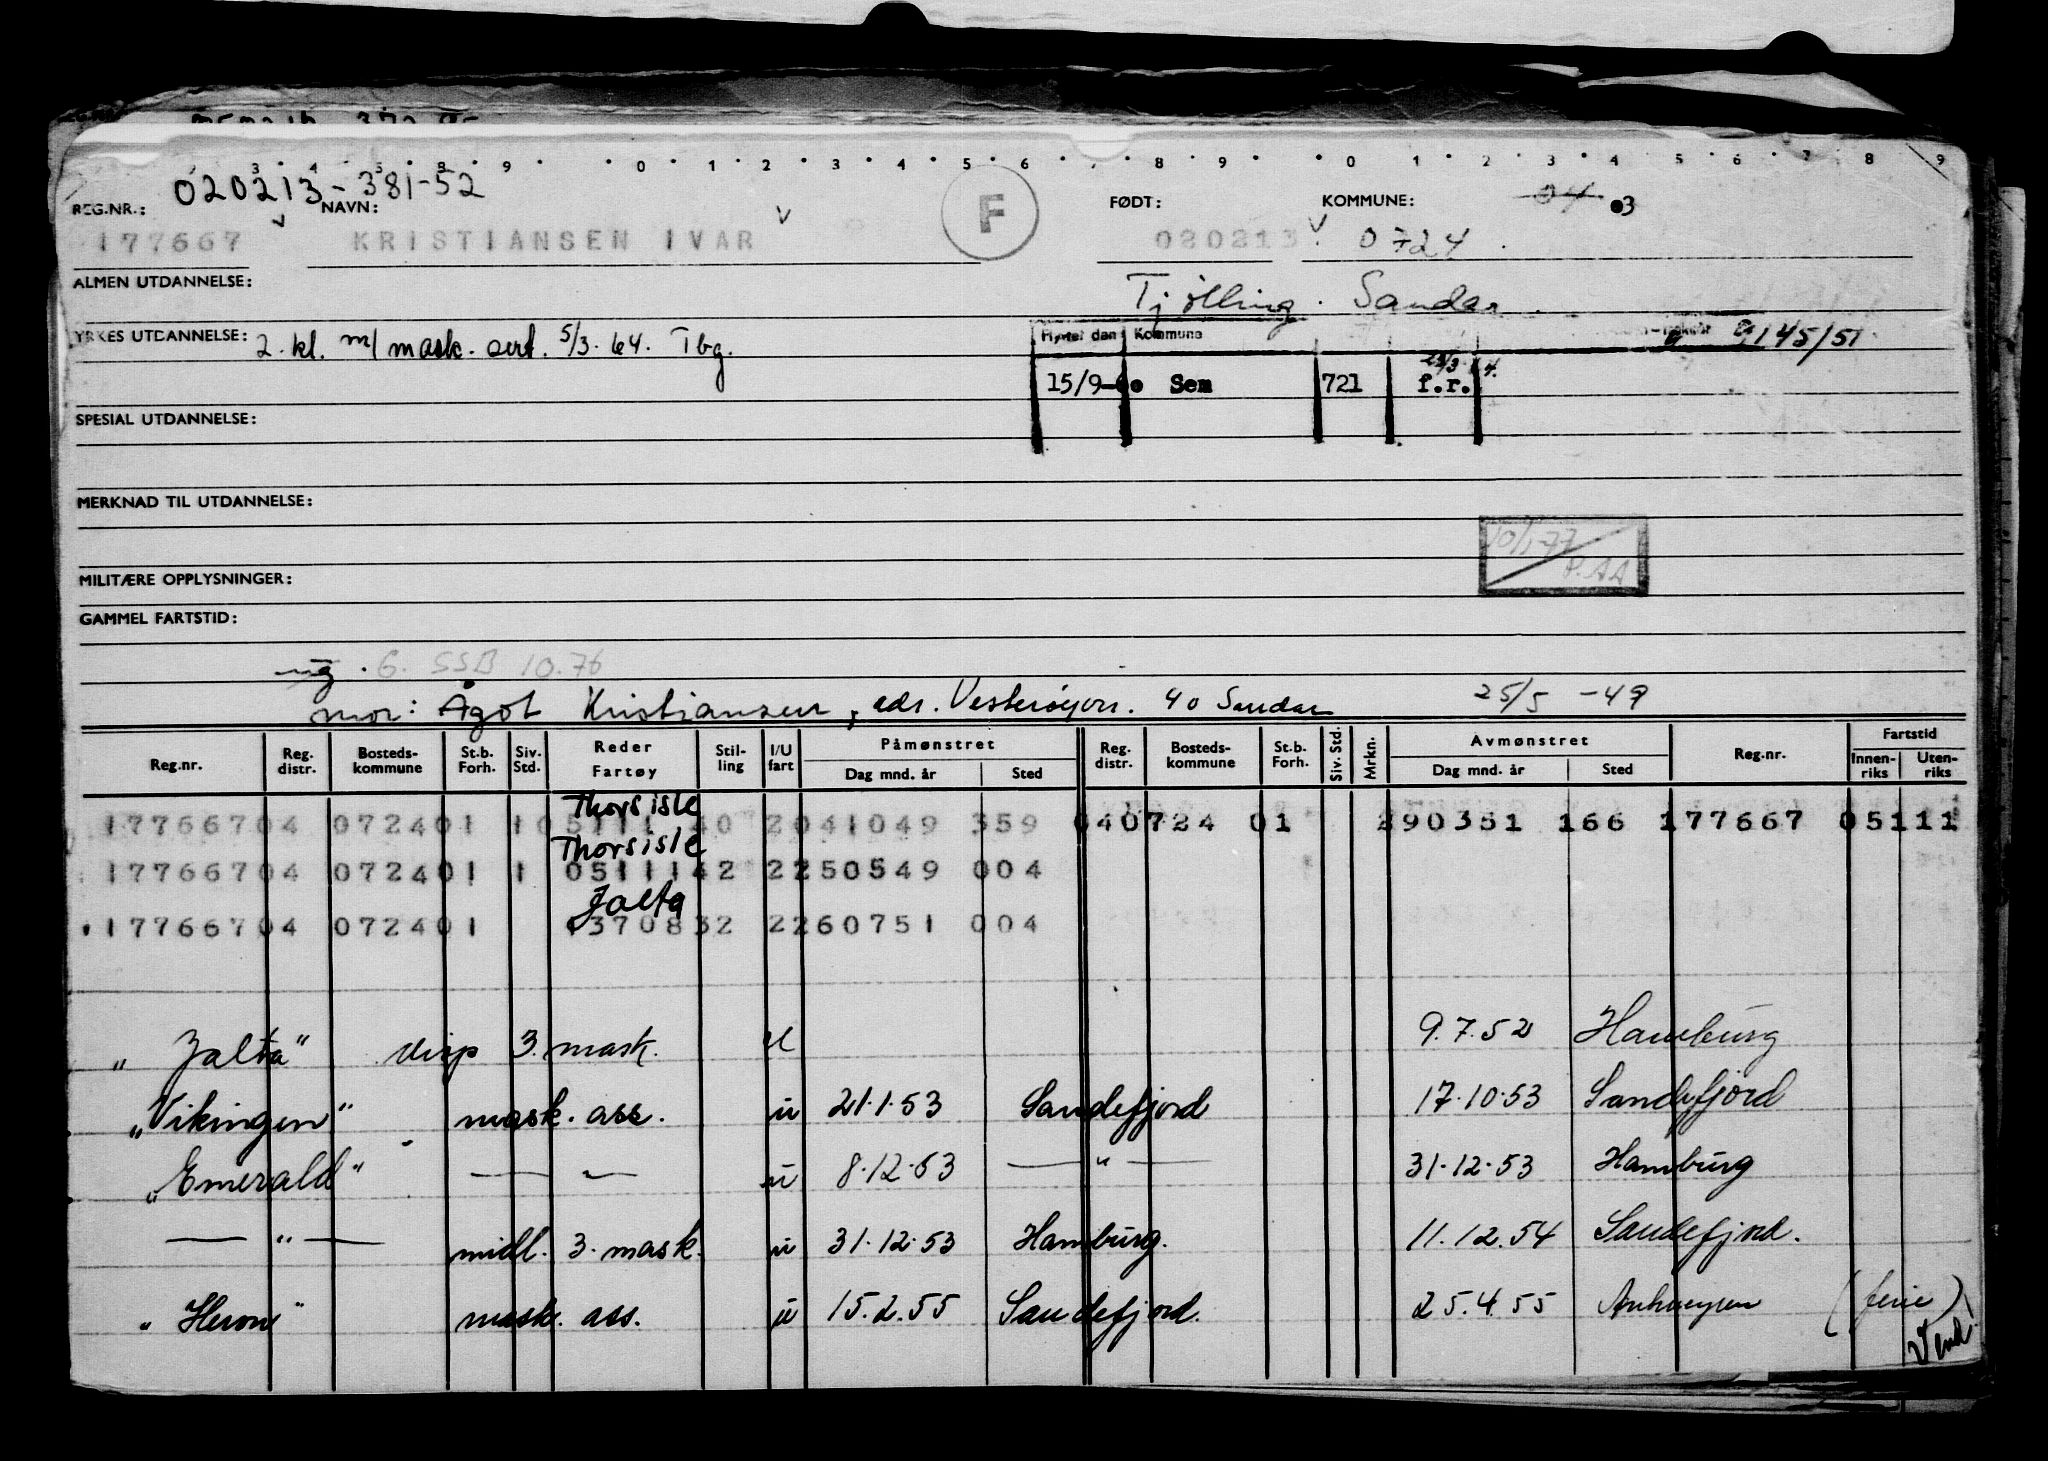 3 4 5 8 9 0 1 2 3 4 5 6 8 9 0 1 2 3 4 5 6 7 8 9
020213-381-52
REG.NR.: NAVN: F FØDT: KOMMUNE: 04 03
177667 KRISTIANSEN IVAR 020213 0724
ALMEN UTDANNELSE: Tjølling. Sandar
YRKES UTDANNELSE: 2. kl. m/ mask. sert. 5/3. 64. Tbg. Flyttet dan Kommune 145/51
15/9-60 Sem 721 f.r.
SPESIAL UTDANNELSE:
MERKNAD TIL UTDANNELSE:
10/1-77
P.AA
MILITÆRE OPPLYSNINGER:
GAMMEL FARTSTID:
ug. G. SSB 10.76
mor: Ågot Kristiansen, adr. Vesterøyvn. 40 Sandar 25/5 -49
Reg.nr. Reg. distr. Bosteds-kommune St.b. Forh. Siv. Std. Reder Fartøy Stil-ling I/U fart Påmønstret Dag mnd. år Sted Reg. distr. Bosteds-kommune St.b. Forh. Siv. Std. Mrkn. Avmønstret Dag mnd. år Sted Reg.nr. Fartstid Innen-riks Uten-riks
Thorsisle
17766704 072401 1 051111 40 2041049 359 040724 01 290351 166 177667 05111
Thorsisle
17766704 072401 1 0511142 2250549 004
Jalta
17766704 072401 0370832 2260751 004
"Jalta" disp 3. mask. u 9.7.52 Hamburg
"Vikingen" mask. ass. u 21.1.53 Sandefjord 17.10.53 Sandefjord
"Emerald" — " — u 8.12.53 — " — 31.12.53 Hamburg
— " — midl. 3. mask. u 31.12.53 Hamburg. 11.12.54 Sandefjord.
"Heron" mask. ass. u 15.2.55 Sandefjord. 25.4.55 Antwerpen (ferie)
Vend!